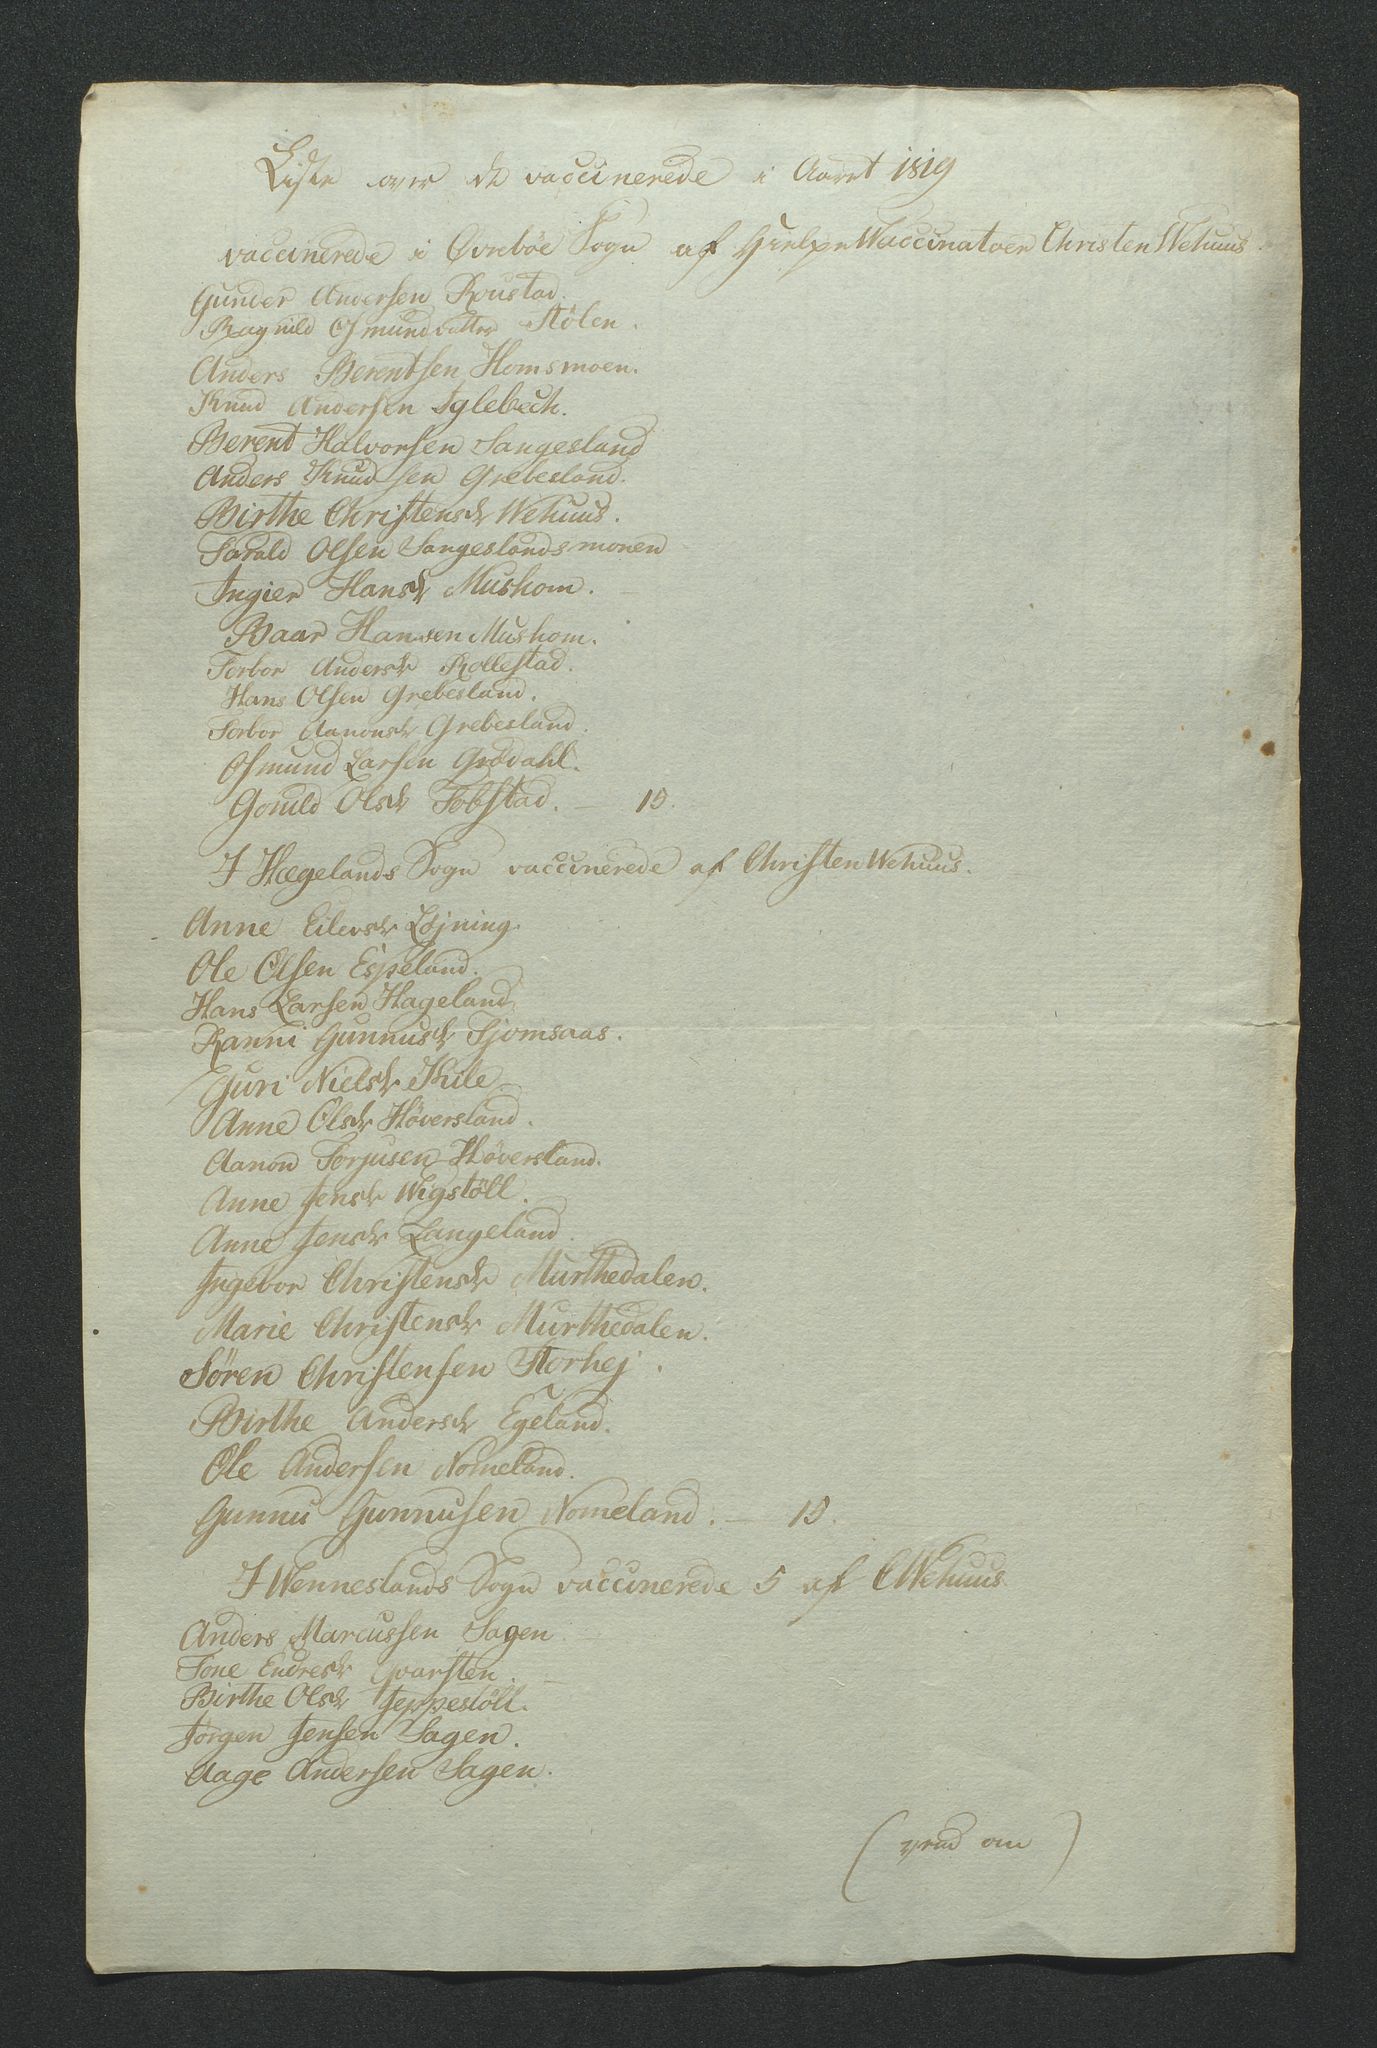 Liste over de vaccinerede i Aaret 1819
vaccinerede i Øvrebøe Sogn af Hielpe Waccinatoer Christen Wehuus.
Gunder Andersen Roustad.
Ragnild Osmundsdatter Stölen.
Anders Berentsen Homsmoen.
Knud Andersen Iglebech.
Berent Halvorsen Sangesland
Anders Knudsen Grebesland.
Birthe Christensdr Wehuus.
Tarald Olsen Sangeslandsmonen
Ingier Hansdr Mushom.
Baar Hansen Mushom.
Torbor Andersdr Rollestad.
Hans Olsen Grebesland.
Torbor Aanonsdr Grebesland.
Osmund Larsen Grødahl.
Gonild Olsdr Tobstad. — 15.
I Hægelands Sogn vaccinerede af Christen Wehuus.
Anne Eilevsdr Løjning.
Ole Olsen Espeland.
Hans Larsen Hageland.
Ranni Gunnusdr Tjomsaas.
Guri Nielsdr Kile
Anne Olsdr Høversland.
Aanon Torjusen Høversland.
Anne Jensdr Wigstöll.
Anne Jensdr Langeland.
Ingebor Christensdr Murthedalen.
Marie Christensdr Murthedalen.
Sören Christensen Storhej.
Birthe Andersdr Egeland.
Ole Andersen Nomeland.
Gunnu Gunnusen Nomeland. — 15.
I Wenneslands Sogn vaccinerede 5 af CWehuus
Anders Marcussen Sagen
Tone Endresdr Qvarsten.
Birthe Olsdr Jeppestöll.
Jörgen Jensen Sagen.
Aage Andersen Sagen.
(vend om)